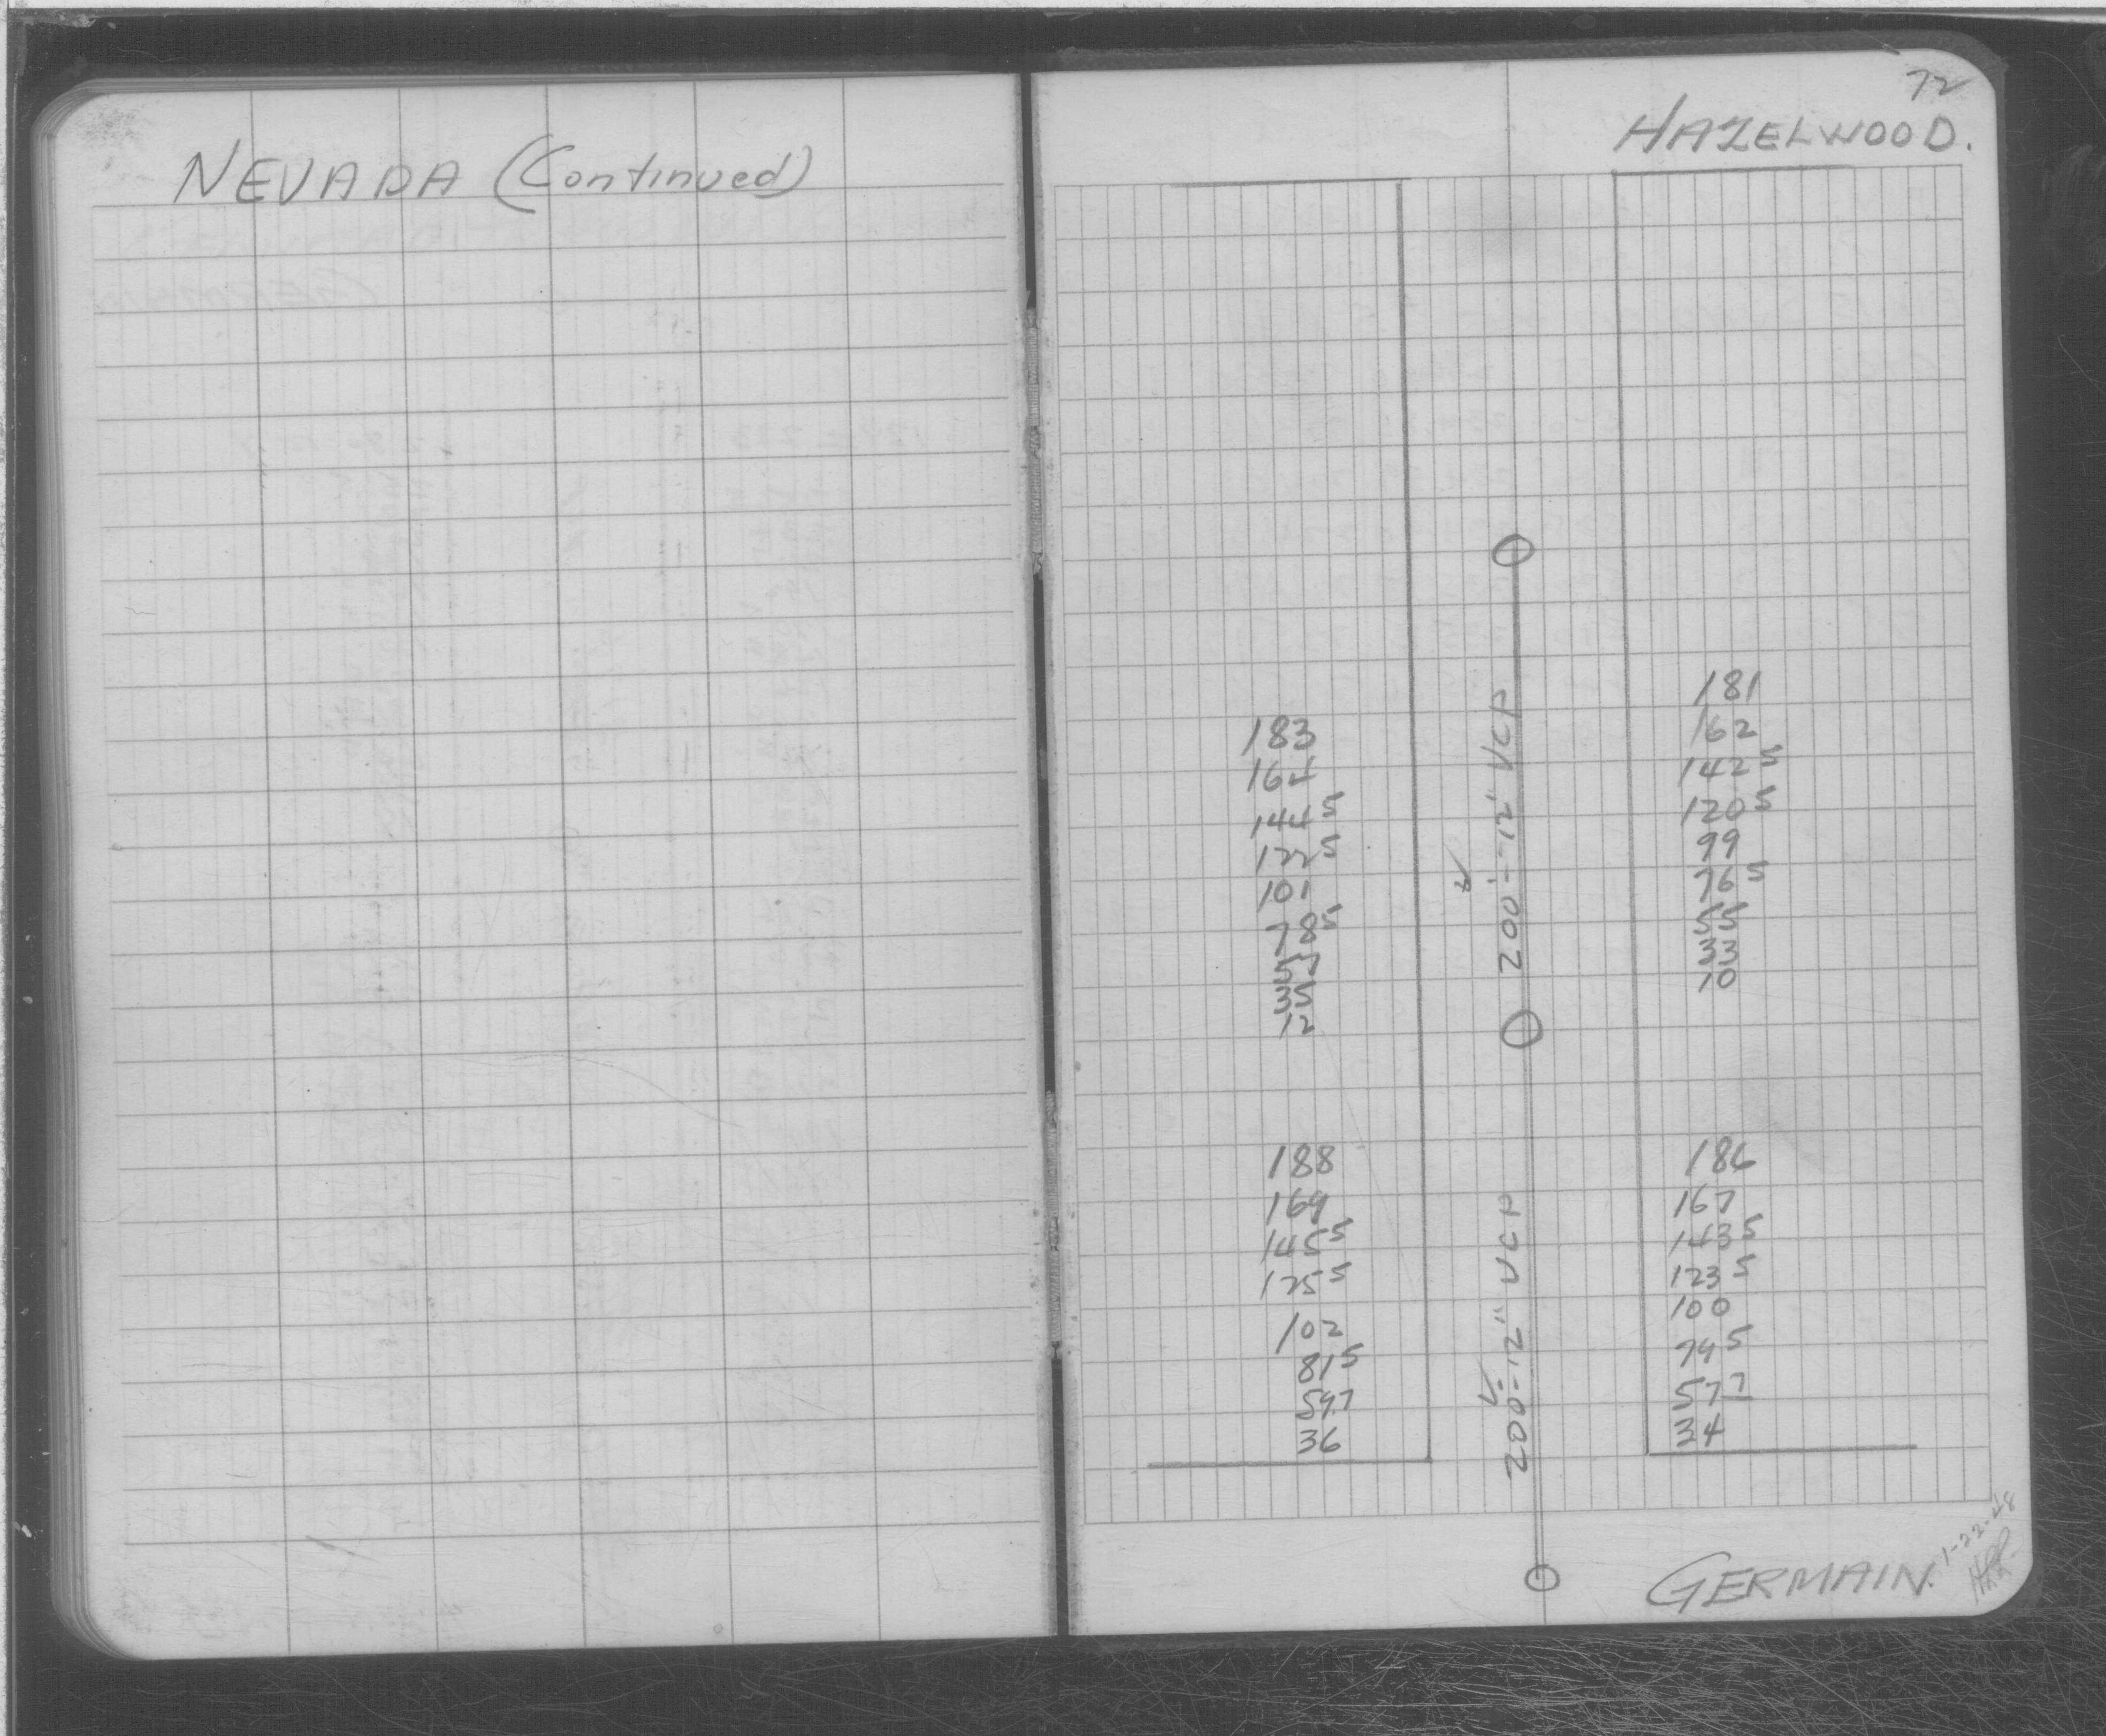 NEVADA (Continued)
72
HAZELWOOD.
183
164
144⁵
122⁵
101
78⁵
57
35
12
200'-12" VCP
181
162
142⁵
120⁵
99
76⁵
55
33
10
188
169
145⁵
125⁵
102
81⁵
597
36
200'-12" VCP
186
167
143⁵
123⁵
100
79⁵
577
34
GERMAIN.
1-22-48